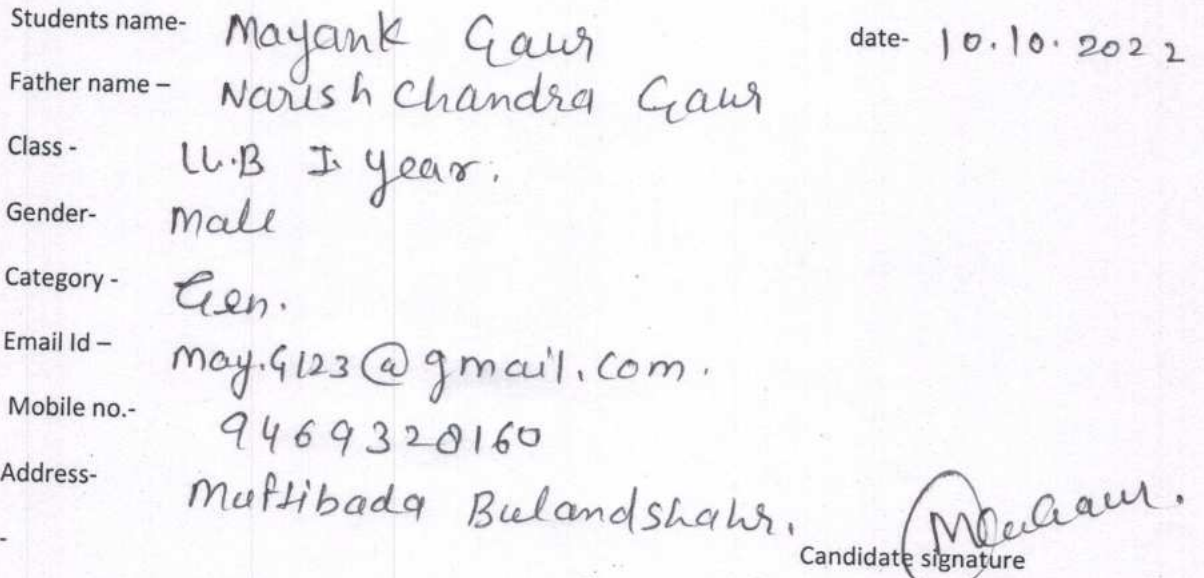 Students name- Mayank Gaur date- 10.10.2022
Father name – Narish Chandra Gaur
Class - LL.B I year.
Gender- Male
Category - Gen.
Email Id – may.G123@gmail.com.
Mobile no.- 9469320160
Address- Muftibada Bulandshahr.
-
Candidate signature